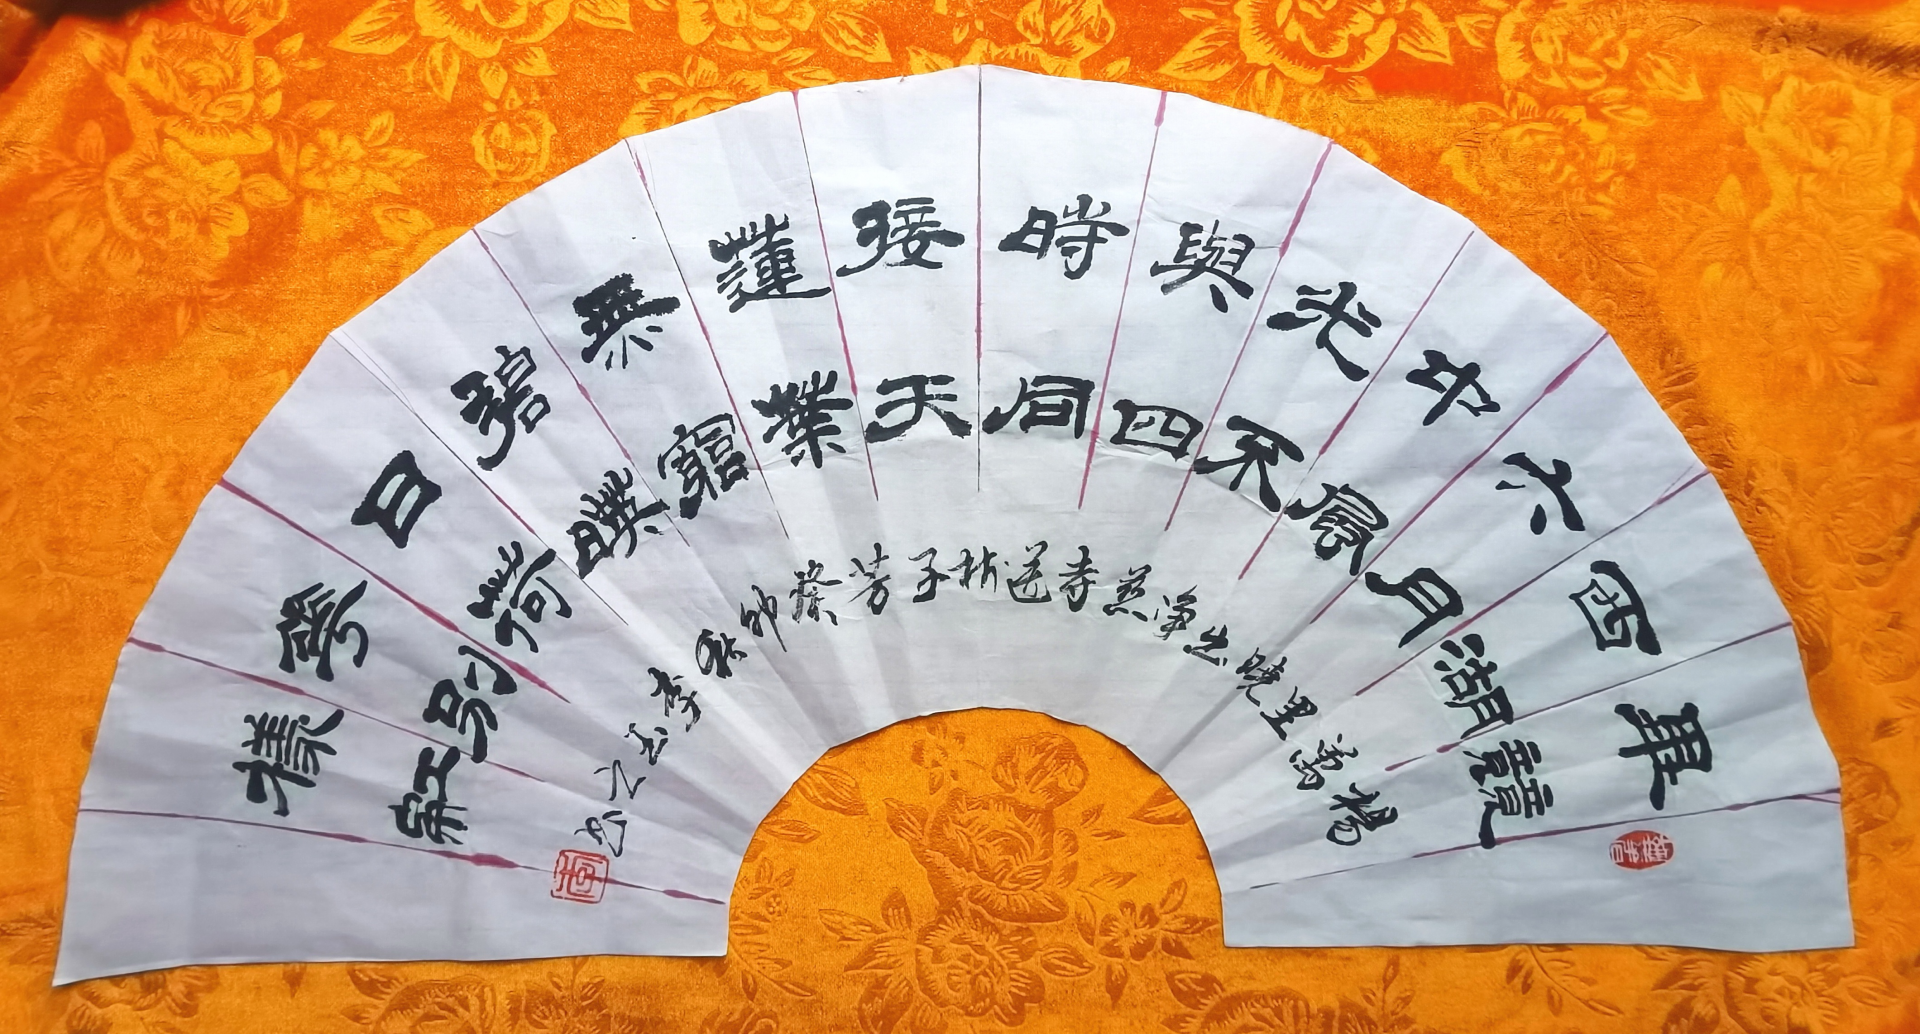 畢竟
西湖
六月
中風
光不
與四
時同
接天
蓮葉
無窮
碧暎
日荷
華別
樣紅
楊萬里曉出淨慈寺送林子芳癸卯秋李玉